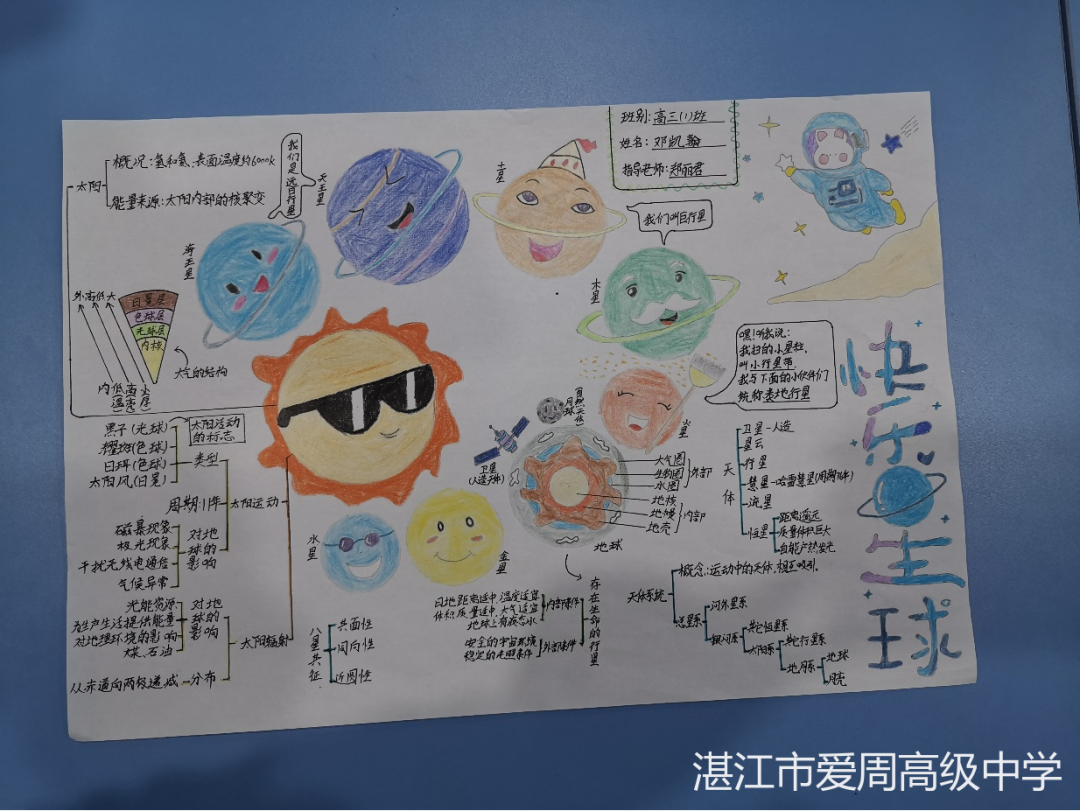 班别:高三(1)班
姓名:邓凯瀚
指导老师:郑丽君
太阳
概况:氢和氦、表面温度约6000k
能量来源:太阳内部的核聚变
我们是远日行星
天王星
海王星
土星
我们叫巨行星
木星
外高低大
日冕层
色球层
光球层
内核
内低高小
(温高层)
大气的结构
嘿!听我说:
我扫的小星柱,
叫小行星带
我与下面的小伙伴们
统称类地行星
火星
快乐星球
黑子(光球)
耀斑(色球)
日珥(色球)
太阳风(日冕)
太阳活动
的标志
类型
周期:11年
太阳运动
磁暴现象
极光现象
干扰无线电通信
气候异常
对地球的影响
光能资源
为生产生活提供能量
对地理环境的影响
煤、石油
对地球的影响
太阳辐射
从赤道向两极递减
分布
水星
金星
八星共征
共面性
同向性
近圆性
月球(自然天体)
卫星
(人造天体)
大气圈
生物圈
水圈
外部
地核
地幔
地壳
内部
地球
存在生命的行星
日地距离适中 温度适宜
体积质量适中 大气适宜
地球上有液态水
内部条件
安全的宇宙环境
稳定的光照条件
外部条件
天体
卫星-人造
星云
行星
彗星-哈雷彗星(周期76年)
流星
恒星
距离遥远
质量体积巨大
自能产热发光
天体系统
概念:运动中的天体,相互吸引.
总星系
河外星系
银河系
其它恒星系
太阳系
其它行星系
地月系
地球
月亮
湛江市爱周高级中学